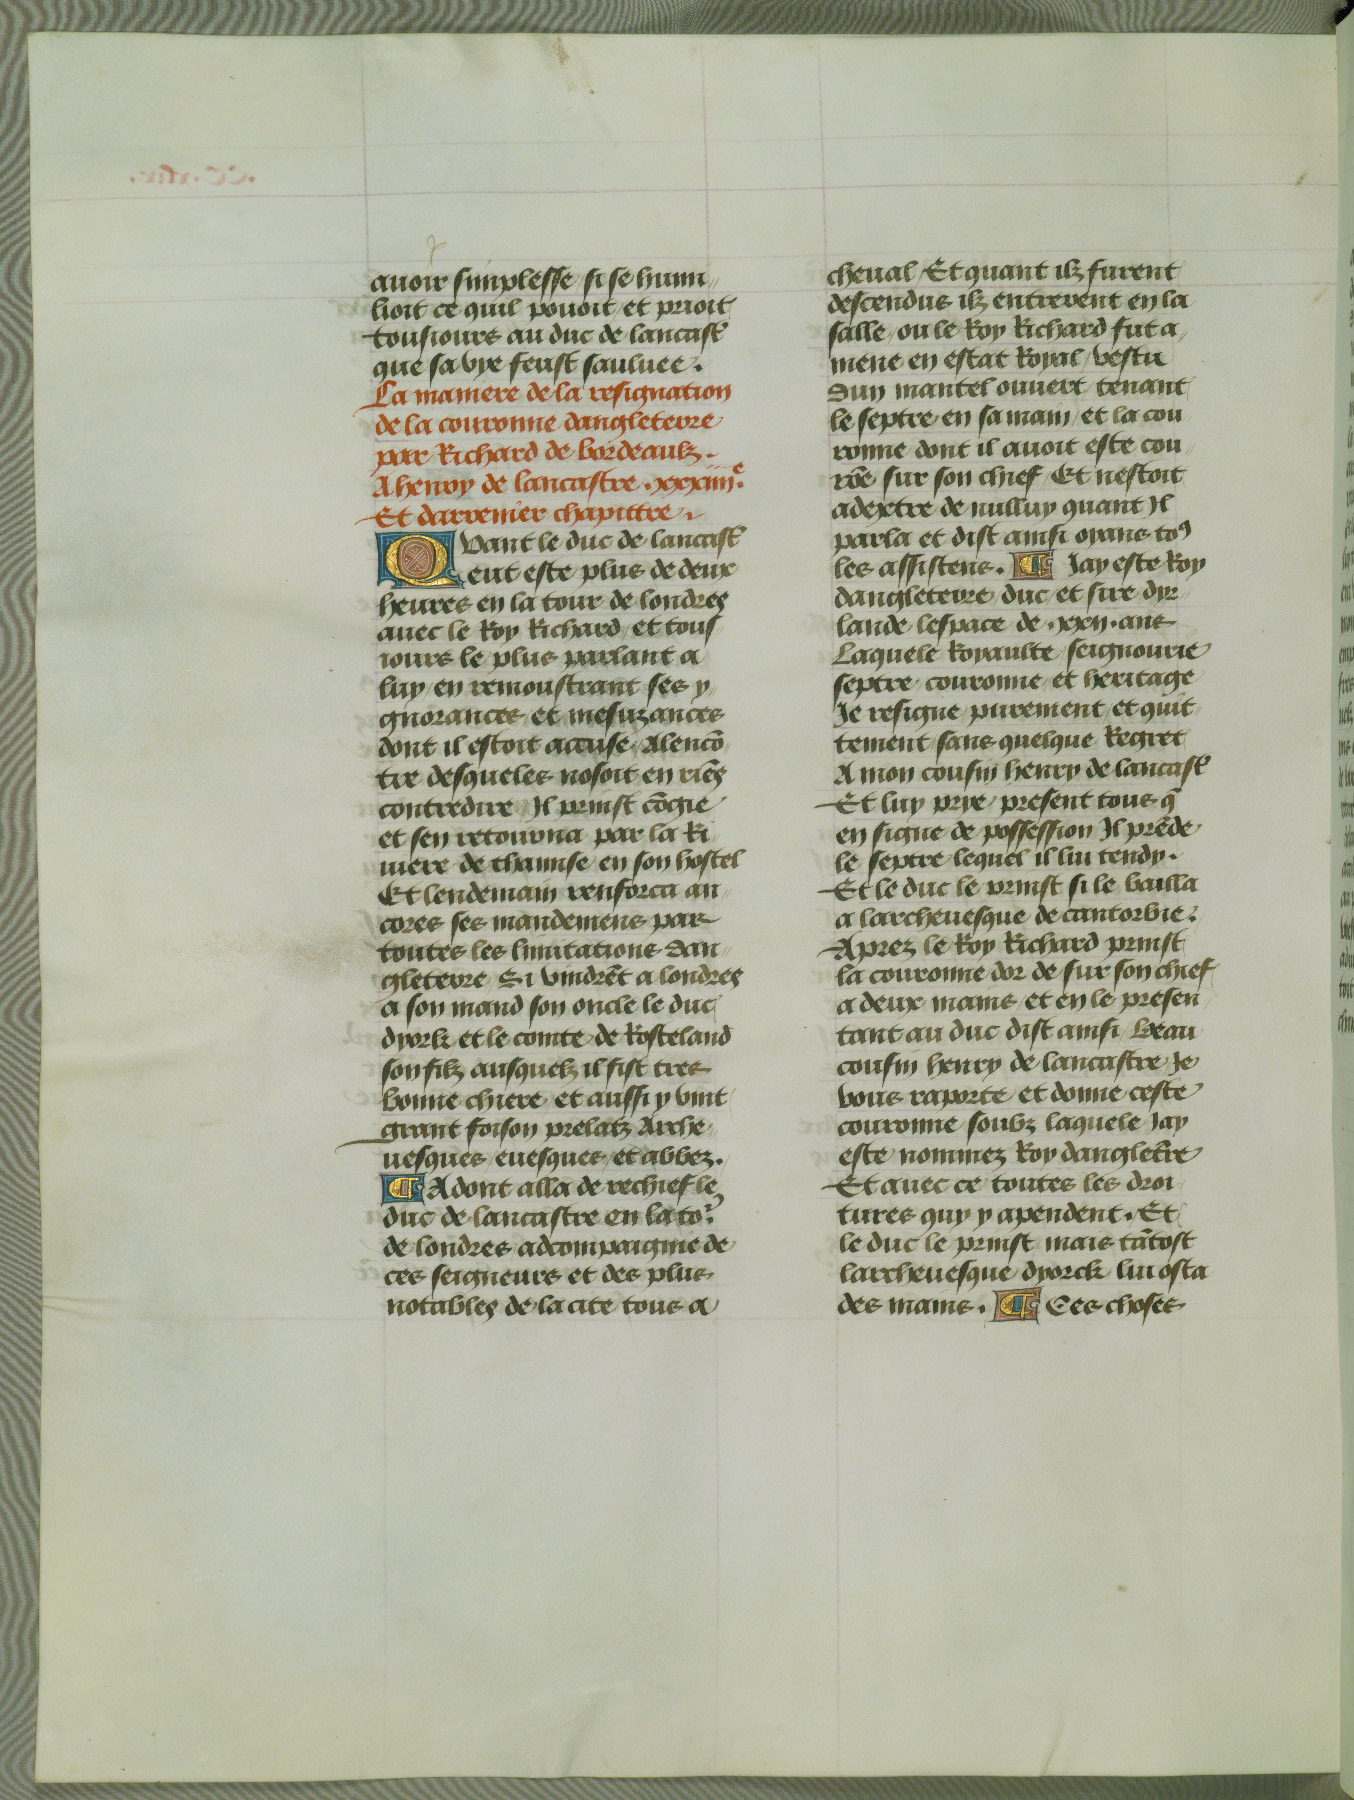 auoir simplesse / si se humi-
lioit ce quil pouoit / et prioit
tousiours au duc de lancast᷒
que sa vye feust sauluee.
La maniere de la resignation
de la couronne dangleterre
par Richard de bordeaulx.
A henry de lancastre .xxxiiii.ͤ
Et darrenier chapittre.
Quant le duc de lancast᷒
eut este plus de deux
heures en la tour de londres
auec le Roy Richard / et tous
iours le plus parlant a
luy / en remoustrant ses y-
gnorances / et mesuzances
dont il estoit accuse / Alencō
tre desqueles nosoit en riēs
contredire / Il prinst cōgie
et sen retourna par la Ri
uiere de thamise / en son hostel
Et lendemain renforca an-
cores ses mandemens par
toutes les limitations dan-
gleterre / Si vindrēt a londres
a son mand son oncle le duc
dyork et le comte de Rosteland
son filz ausquelz il fist tres
bonne chiere / et aussi y vint
grant foison prelatz Arche-
uesques / euesques / et abbez.
¶ Adont alla de rechief le
duc de lancastre en la toʳ.
de londres adcompaignie de
ces seigneurs et des plus
notables de la cite tous a
cheual / Et quant ilz furent
descendus ilz entrerent en la
salle / ou le Roy Richard fut a-
mene en estat Royal / vestu
dun mantel ouuert / tenant
le septre en sa main / et la cou-
ronne dont il auoit este cou-
rōe sur son chief / Et nestoit
adextre de nulluy quant Il
parla et dist ainsi oyans toꝰ
les assistens. ¶ Jay este Roy
dangleterre / duc et sire dyr-
lande lespace de .xxii. ans
Laquele Royaulte / seignourie
septre / couronne / et heritage
Je resigne purement / et quit-
tement / sans quelque Regret
A mon cousin henry de lancast᷒
Et luy prye / present tous q̄
en signe de possession Il prēde
le septre lequel il lui tendy.
Et le duc le prinst si le bailla
a larcheuesque de cantorbie.
Aprez le Roy Richard prinst
la couronne dor de sur son chief
a deux mains / et en le presen-
tant au duc dist ainsi / Beau
cousin henry de lancastre Je
vous raporte / et donne ceste
couronne / soubz laquele Jay
este nommez Roy dangletr̄e
Et auec ce toutes les droi-
tures quy y apendent. Et
le duc le prinst mais tātost
larcheuesque dyorck lui osta
des mains. ¶ Ces choses